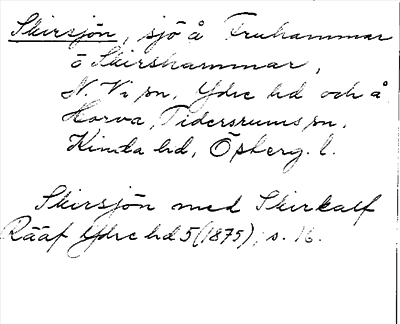 Skirsjön, sjö å Fruhammar
o Skirshammar,
N. Vi sn, Ydre hd och å
Horva, Tidersrums sn,
Kinda hd, Östergl. l.
Skirsjön med Skirkalf
Rääf Ydre hd 5 (1875), s. 16.